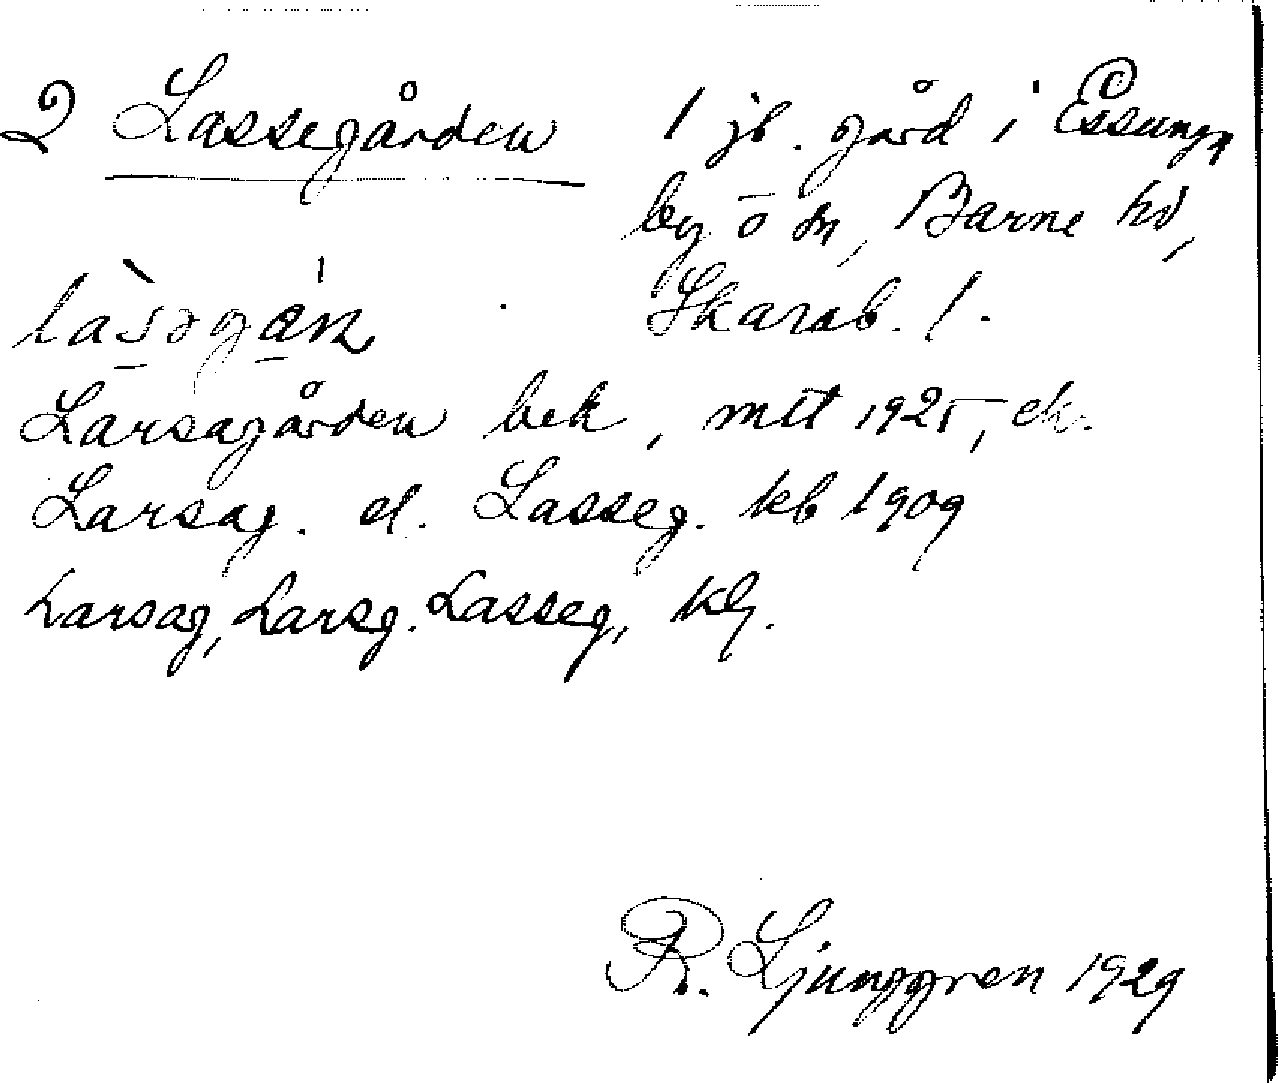 2 Lassegården 1 jb. gård i Essunga
by o sn, Barne hd,
Skarab. l.
Larsagården bek, mtl 1925, ek.
Larsag. el. Lasseg. kb 1909
Larsag, Larsg. Lasseg,
R. Ljunggren 1929